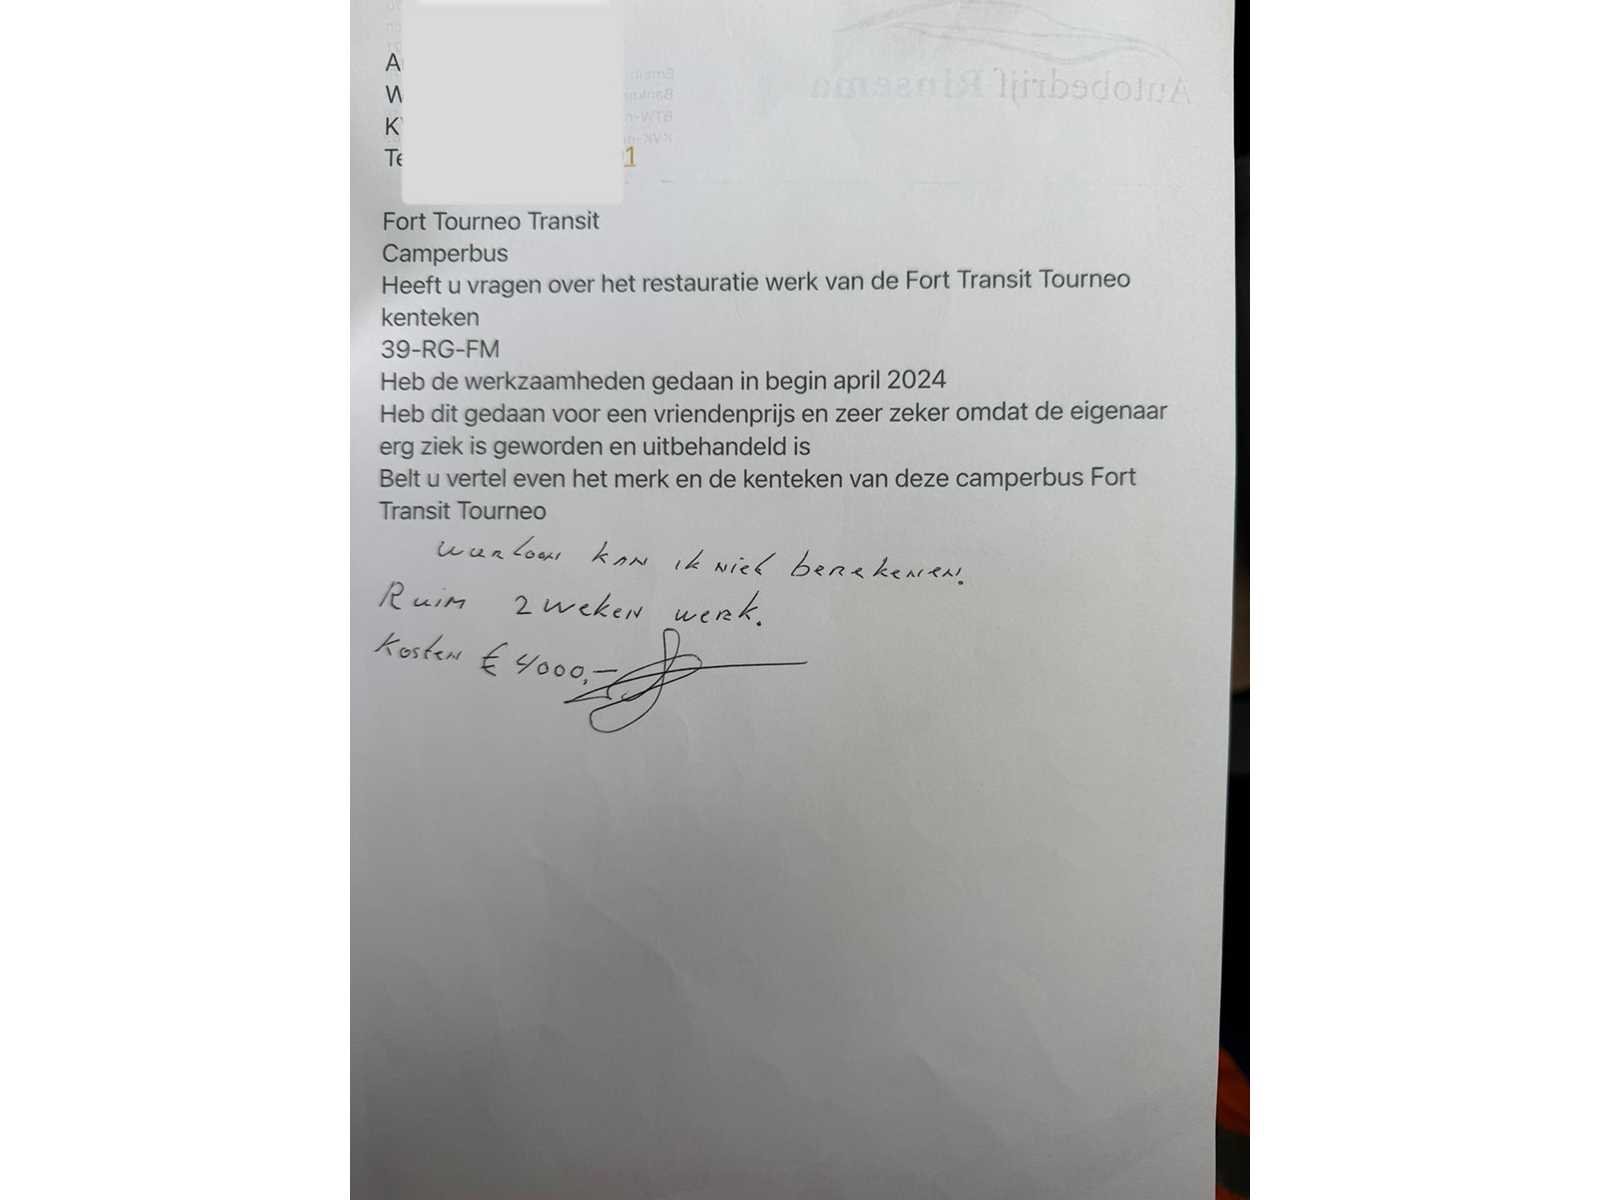 Autobedrijf Rinsema
Email
BTW-n
KVK-n
A
W
K
Te
1
Fort Tourneo Transit
Camperbus
Heeft u vragen over het restauratie werk van de Fort Transit Tourneo
kenteken
39-RG-FM
Heb de werkzaamheden gedaan in begin april 2024
Heb dit gedaan voor een vriendenprijs en zeer zeker omdat de eigenaar
erg ziek is geworden en uitbehandeld is
Belt u vertel even het merk en de kenteken van deze camperbus Fort
Transit Tourneo
uurloon kan ik niet berekenen.
Ruim 2 weken werk.
Kosten € 4000,-